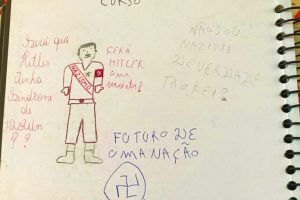 CURSO
Será que
Hitler
tinha
Síndrome
de
Down
?
NAZISMO
SERÁ
HITLER
uma
menina?
NÃO SOU
NAZISTA
DE VERDADE
TÁ OKEI?
FUTURO DE
UMA NAÇÃO